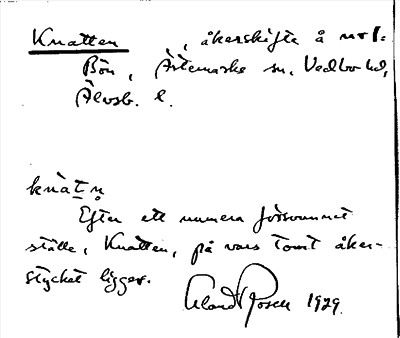 Knatten, åkerskifte å nr 1.
Bön, Ärtemarks sn, Vedbo hd,
Älvsb. l.
knàt̠n̥
Efter ett numera försvunnet
ställe, Knatten, på vars tomt åker-
stycket ligger.
Rosell 1929.